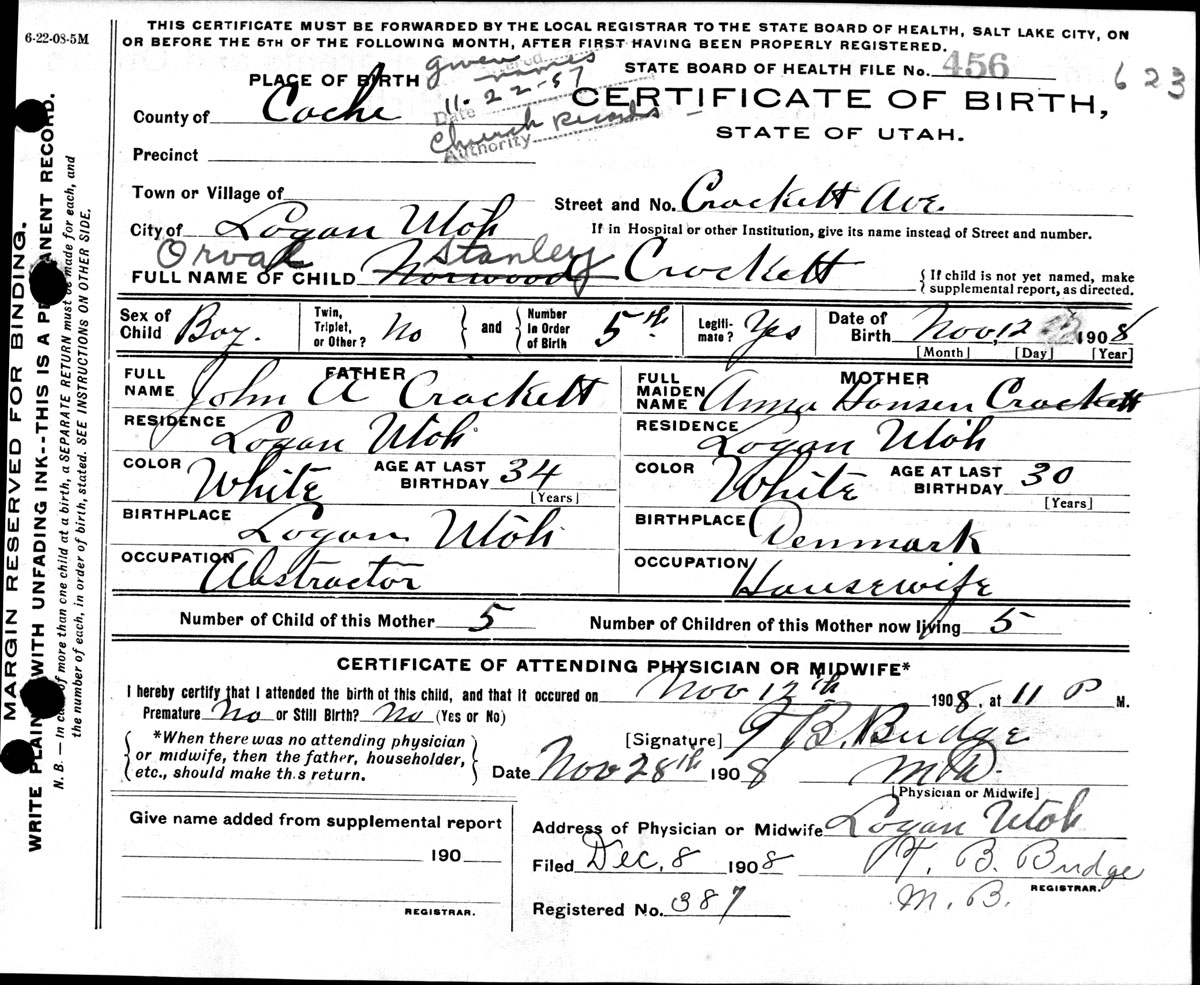 THIS CERTIFICATE MUST BE FORWARDED BY THE LOCAL REGISTRAR TO THE STATE BOARD OF HEALTH, SALT LAKE CITY, ON
6-22-08-5M
OR BEFORE THE 5TH OF THE FOLLOWING MONTH, AFTER FIRST HAVING BEEN PROPERLY REGISTERED.
STATE BOARD OF HEALTH FILE No. 456 623
PLACE OF BIRTH given names
Date 11-22-57
Church Records
Authority
CERTIFICATE OF BIRTH,
STATE OF UTAH.
County of Cache
Precinct
Town or Village of
Street and No. Crockett Ave.
City of Logan Utah
If in Hospital or other Institution, give its name instead of Street and number.
Orval Stanley
FULL NAME OF CHILD Norwood Crockett
{ If child is not yet named, make
supplemental report, as directed.
Sex of Child Boy.
Twin, Triplet, or Other? No } and { Number in Order of Birth 5th
Legiti-mate? Yes
Date of Birth Nov, 12 1908
[Month] [Day] [Year]
FATHER
FULL NAME John A Crockett
RESIDENCE Logan Utah
COLOR White AGE AT LAST BIRTHDAY 34
[Years]
BIRTHPLACE Logan Utah
OCCUPATION Abstractor
MOTHER
FULL MAIDEN NAME Anna Hansen Crockett
RESIDENCE Logan Utah
COLOR White AGE AT LAST BIRTHDAY 30
[Years]
BIRTHPLACE Denmark
OCCUPATION Housewife
Number of Child of this Mother 5 Number of Children of this Mother now living 5
CERTIFICATE OF ATTENDING PHYSICIAN OR MIDWIFE*
I hereby certify that I attended the birth of this child, and that it occured on Nov 12th 1908, at 11 P M.
Premature No or Still Birth? No (Yes or No)
{ *When there was no attending physician
or midwife, then the father, householder,
etc., should make th.s return. }
[Signature] T B. Budge
Date Nov 28th 1908 M.D.
[Physician or Midwife]
Give name added from supplemental report
190
REGISTRAR.
Address of Physician or Midwife Logan Utah
Filed Dec, 8 1908 T. B. Budge
REGISTRAR.
M. B.
Registered No. 387
MARGIN RESERVED FOR BINDING.
WRITE PLAIN WITH UNFADING INK--THIS IS A PERMANENT RECORD.
N. B. — In case of more than one child at a birth, a SEPARATE RETURN must be made for each, and
the number of each, in order of birth, stated. SEE INSTRUCTIONS ON OTHER SIDE.